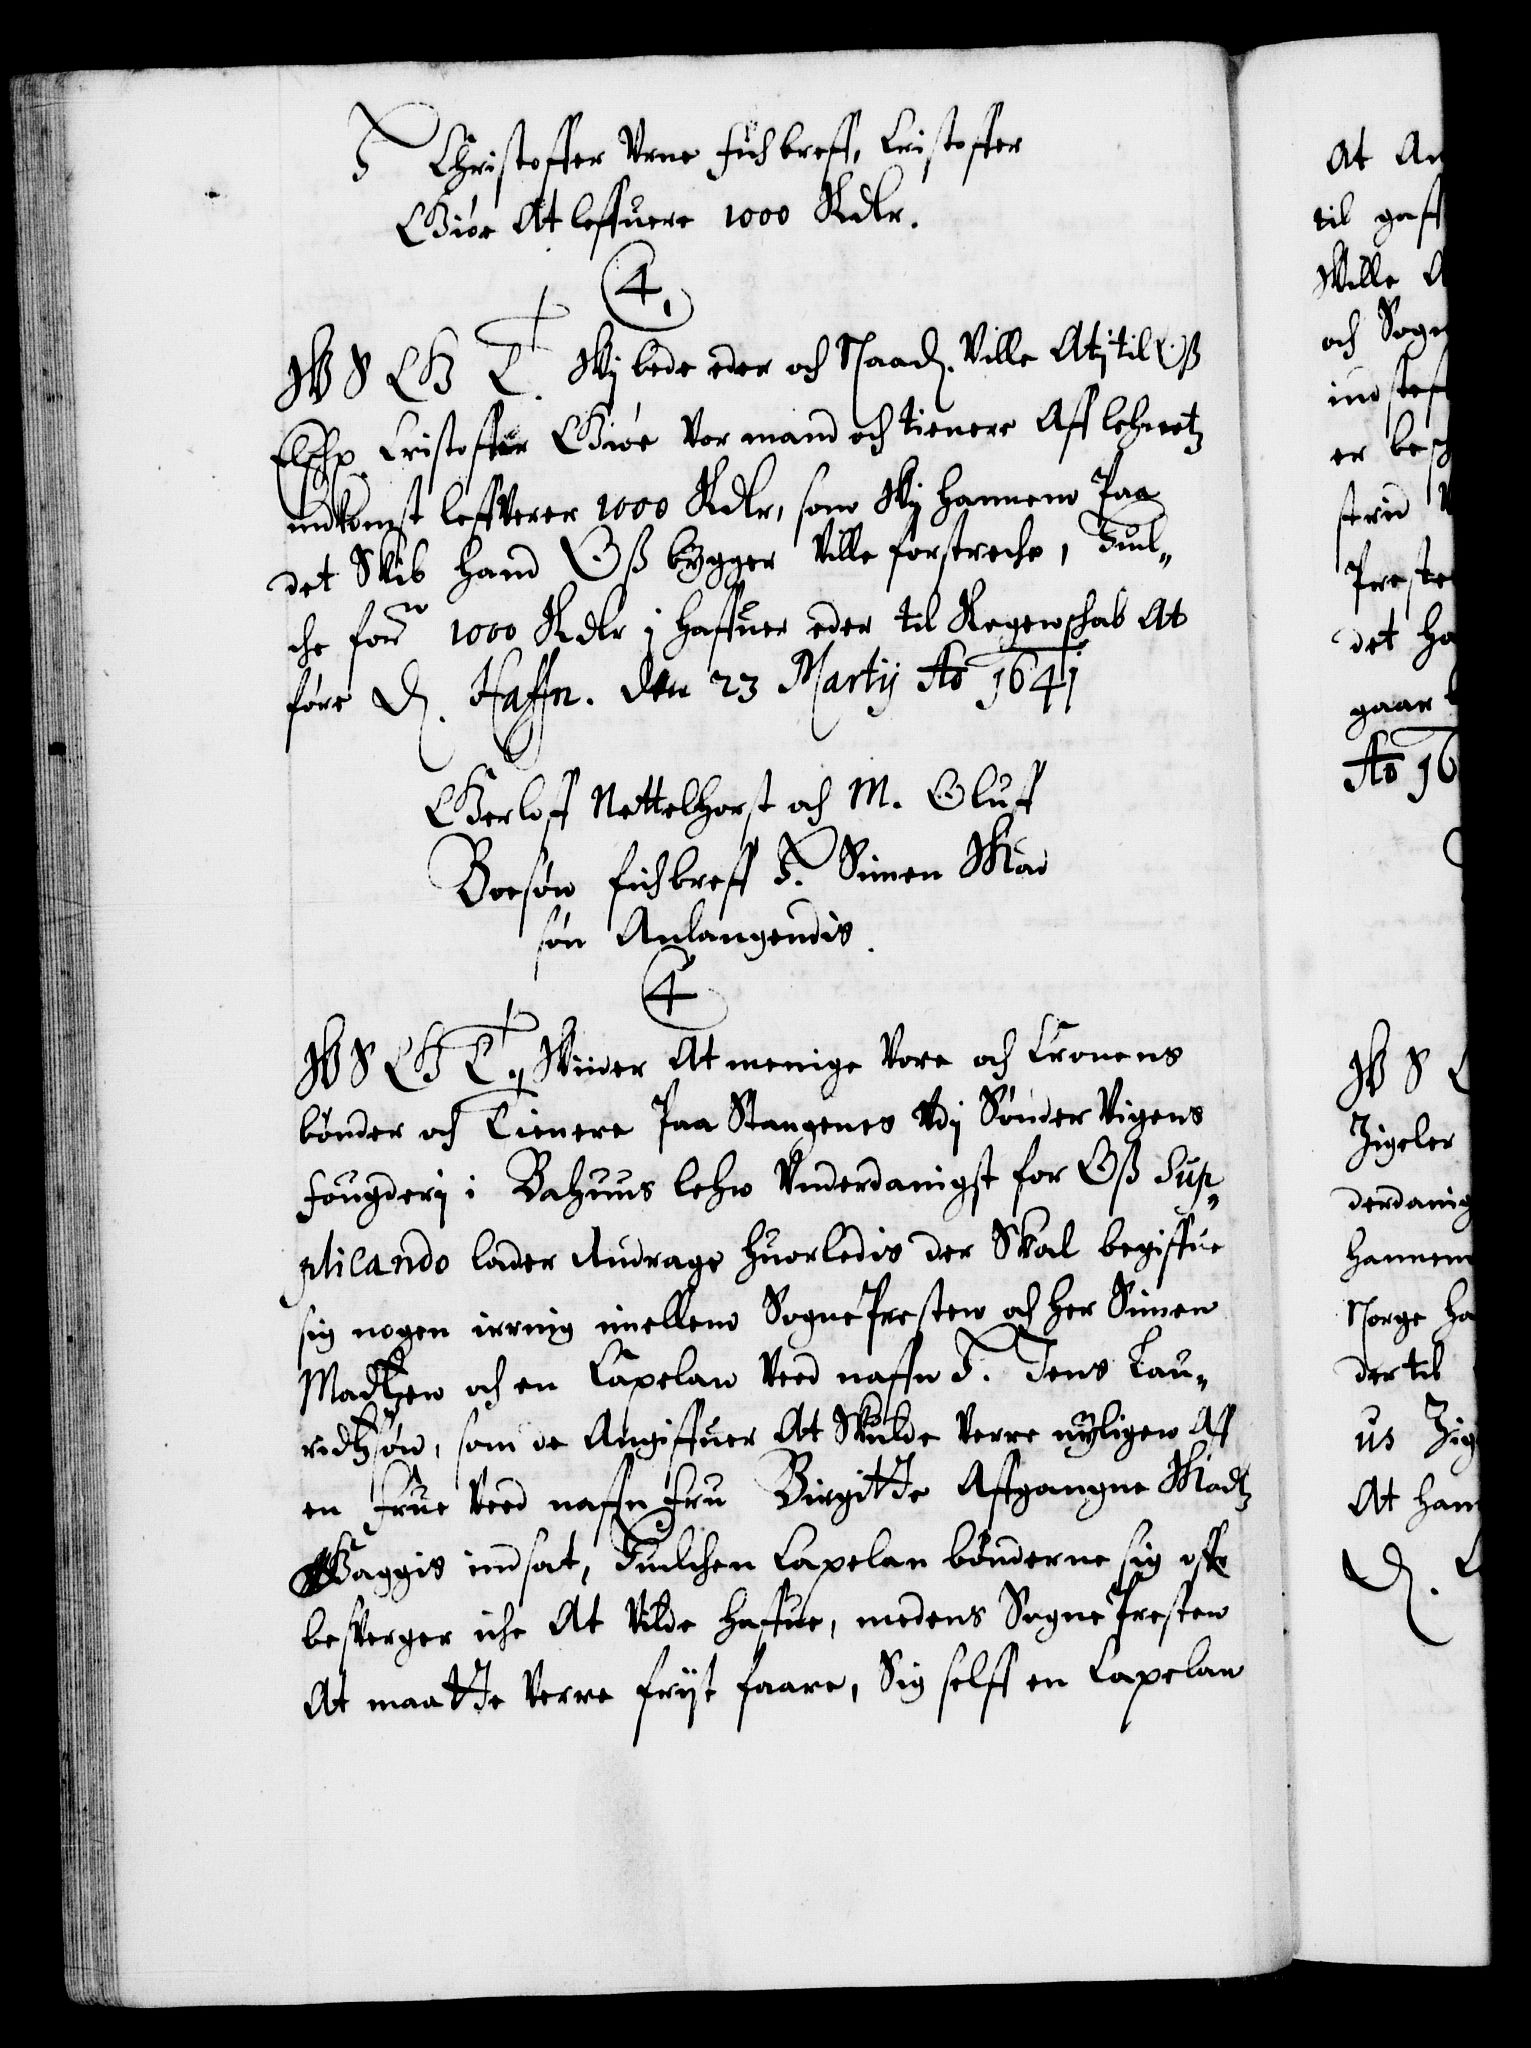 H Christoffer Vrne Fich breff, Cristoffer
Giøe At leffuere 1000 Rdlr.
4.
W S G T. Wij bede eder och Naad. Ville At i til Oß
Elschl. Cristoffer Giøe Vor mand och tienere Aff lehnetz
indkomst leffverer 1000 Rdlr, som Wij hannem Paa
det Skib hand Oß bygger Ville forstreche, Huil„
che forne 1000 Rdlr i haffuer eder til Regenschab At
føre D. Haffn. den 23 Martij Ao 1641
Gerloff Nettelhorst och M. Oluff
Boesøn fich breff H. Simen Mad
søn Anlangendis.
4
W S G T. Wider At menige Vore och Cronens
bønder och Tienere Paa Stangenes Vdj Sønder Vigens
Fougderj i Bahuus lehn Vnderdanigst for Oß Sup„
plicando lader Andrage huorledis der Skal begiffue
sig nogen irring imellem Sogne Presten och her Simen
Madtzen och en Capelan Veed naffn H. Jens Lau„
ridtzsøn, som de Angiffuer At Skulde Verre nyligen Aff
en Frue Veed naffn Fru Birgitte Affgangne Madtz
Baggis indsat, Huilchen Capelan bønderne sig
besverger iche At Vilde haffue, medens Sogne Presten
At maatte Verre frijt faare, Sig selff en Capelan
At An
til gaff
Wille
och Sogn
indsteff
er besch
strid
Preste
det ha
gaar
Ao 16
W S
Zigeler
derdanig
hannem
Norge ha
der til
us Zig
At han
D.